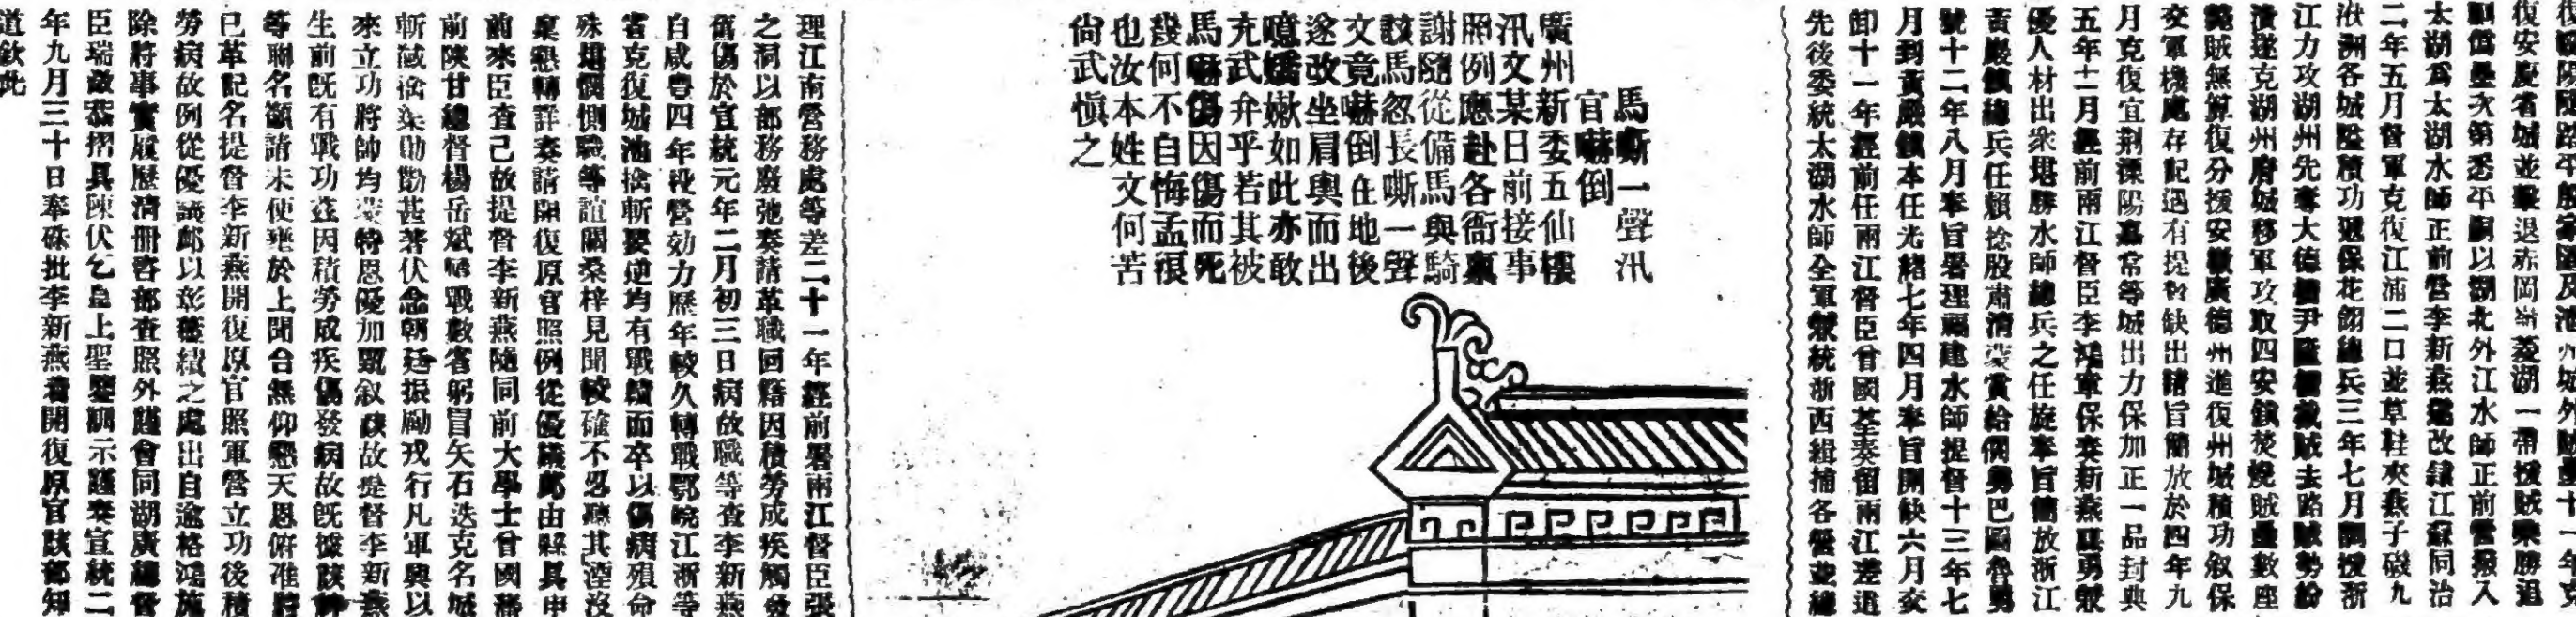 復安慶省城並擊退赤岡嶺菱湖一帶援賊乘勝追
剿僞壘次第悉平嗣以湖北外江水師正前營撥入
太湖爲太湖水師正前營李新燕遂改隸江蘇同治
二年五月督軍克復江浦二口並草鞋夾燕子磯九
洑洲各城隘積功遞保花翎總兵三年七月調援浙
江力攻湖州先奪大德橋尹隆橋截賊去路賊勢紛
潰遂克湖州府城移軍攻取四安鎮焚燬賊壘數座
斃賊無算復分援安徽廣德州進復州城積功叙保
交軍機處存記遇有提督缺出請旨簡放於四年九
月克復宜荆溧陽嘉常等城出力保加正一品封典
五年十二月經前兩江督臣李鴻章保奏新燕謀勇兼
優人材出衆堪勝水師總兵之任旋奉旨簡放浙江
黃巖鎮總兵任賴捻股肅清蒙賞給僩勇巴圖魯勇
號十二年八月奉旨署理福建水師提督十三年七
月到黃巖鎮本任光緒七年四月奉旨開缺六月交
卸十一年經前任兩江督臣曾國荃奏留兩江差遣
先後委統太湖水師全軍兼統浙西緝捕各營並總
馬嘶一聲汛
官嚇倒
廣州新委五仙樓
汛文某日前接事
照例應赴各衙稟
謝隨從備馬與騎
該馬忽長嘶一聲
文竟嚇倒在地後
遂改坐肩輿而出
噫嬌嫩如此亦敢
充武弁乎若其被
馬嚇傷因傷而死
證何不自悔孟浪
也汝本姓文何苦
尚武慎之
理江南營務處等差二十一年經前署兩江督臣張
之洞以部務廢弛奏請革職回籍因積勞成疾觸發
舊傷於宣統元年二月初三日病故職等查李新燕
自咸豐四年投營効力歷年較久轉戰鄂皖江浙等
省克復城池擒斬要逆均有戰績而卒以傷病殞命
殊堪憫惻職等誼關桑梓見聞較確不忍聽其湮沒
稟懇轉詳奏請開復原官照例從優議卹由縣具申
前來臣查己故提督李新燕隨同前大學士曾國藩
前陝甘總督楊岳斌轉戰數省躬冒矢石迭克名城
斬馘擒渠助勦甚著伏念朝廷振勵戎行凡軍興以
來立功將帥均蒙特恩優加甄叙該故提督李新燕
生前既有戰功茲因積勞成疾傷發病故既據該紳
等聯名籲請未便壅於上聞合無仰懇天恩俯准將
已革記名提督李新燕開復原官照軍營立功後積
勞病故例從優議卹以彰藎績之處出自逾格鴻施
除將事實履歷清冊咨部查照外謹會同湖廣總督
臣瑞澂恭摺具陳伏乞皇上聖鑒訓示謹奏宣統二
年九月三十日奉硃批李新燕着開復原官該部知
道欽此